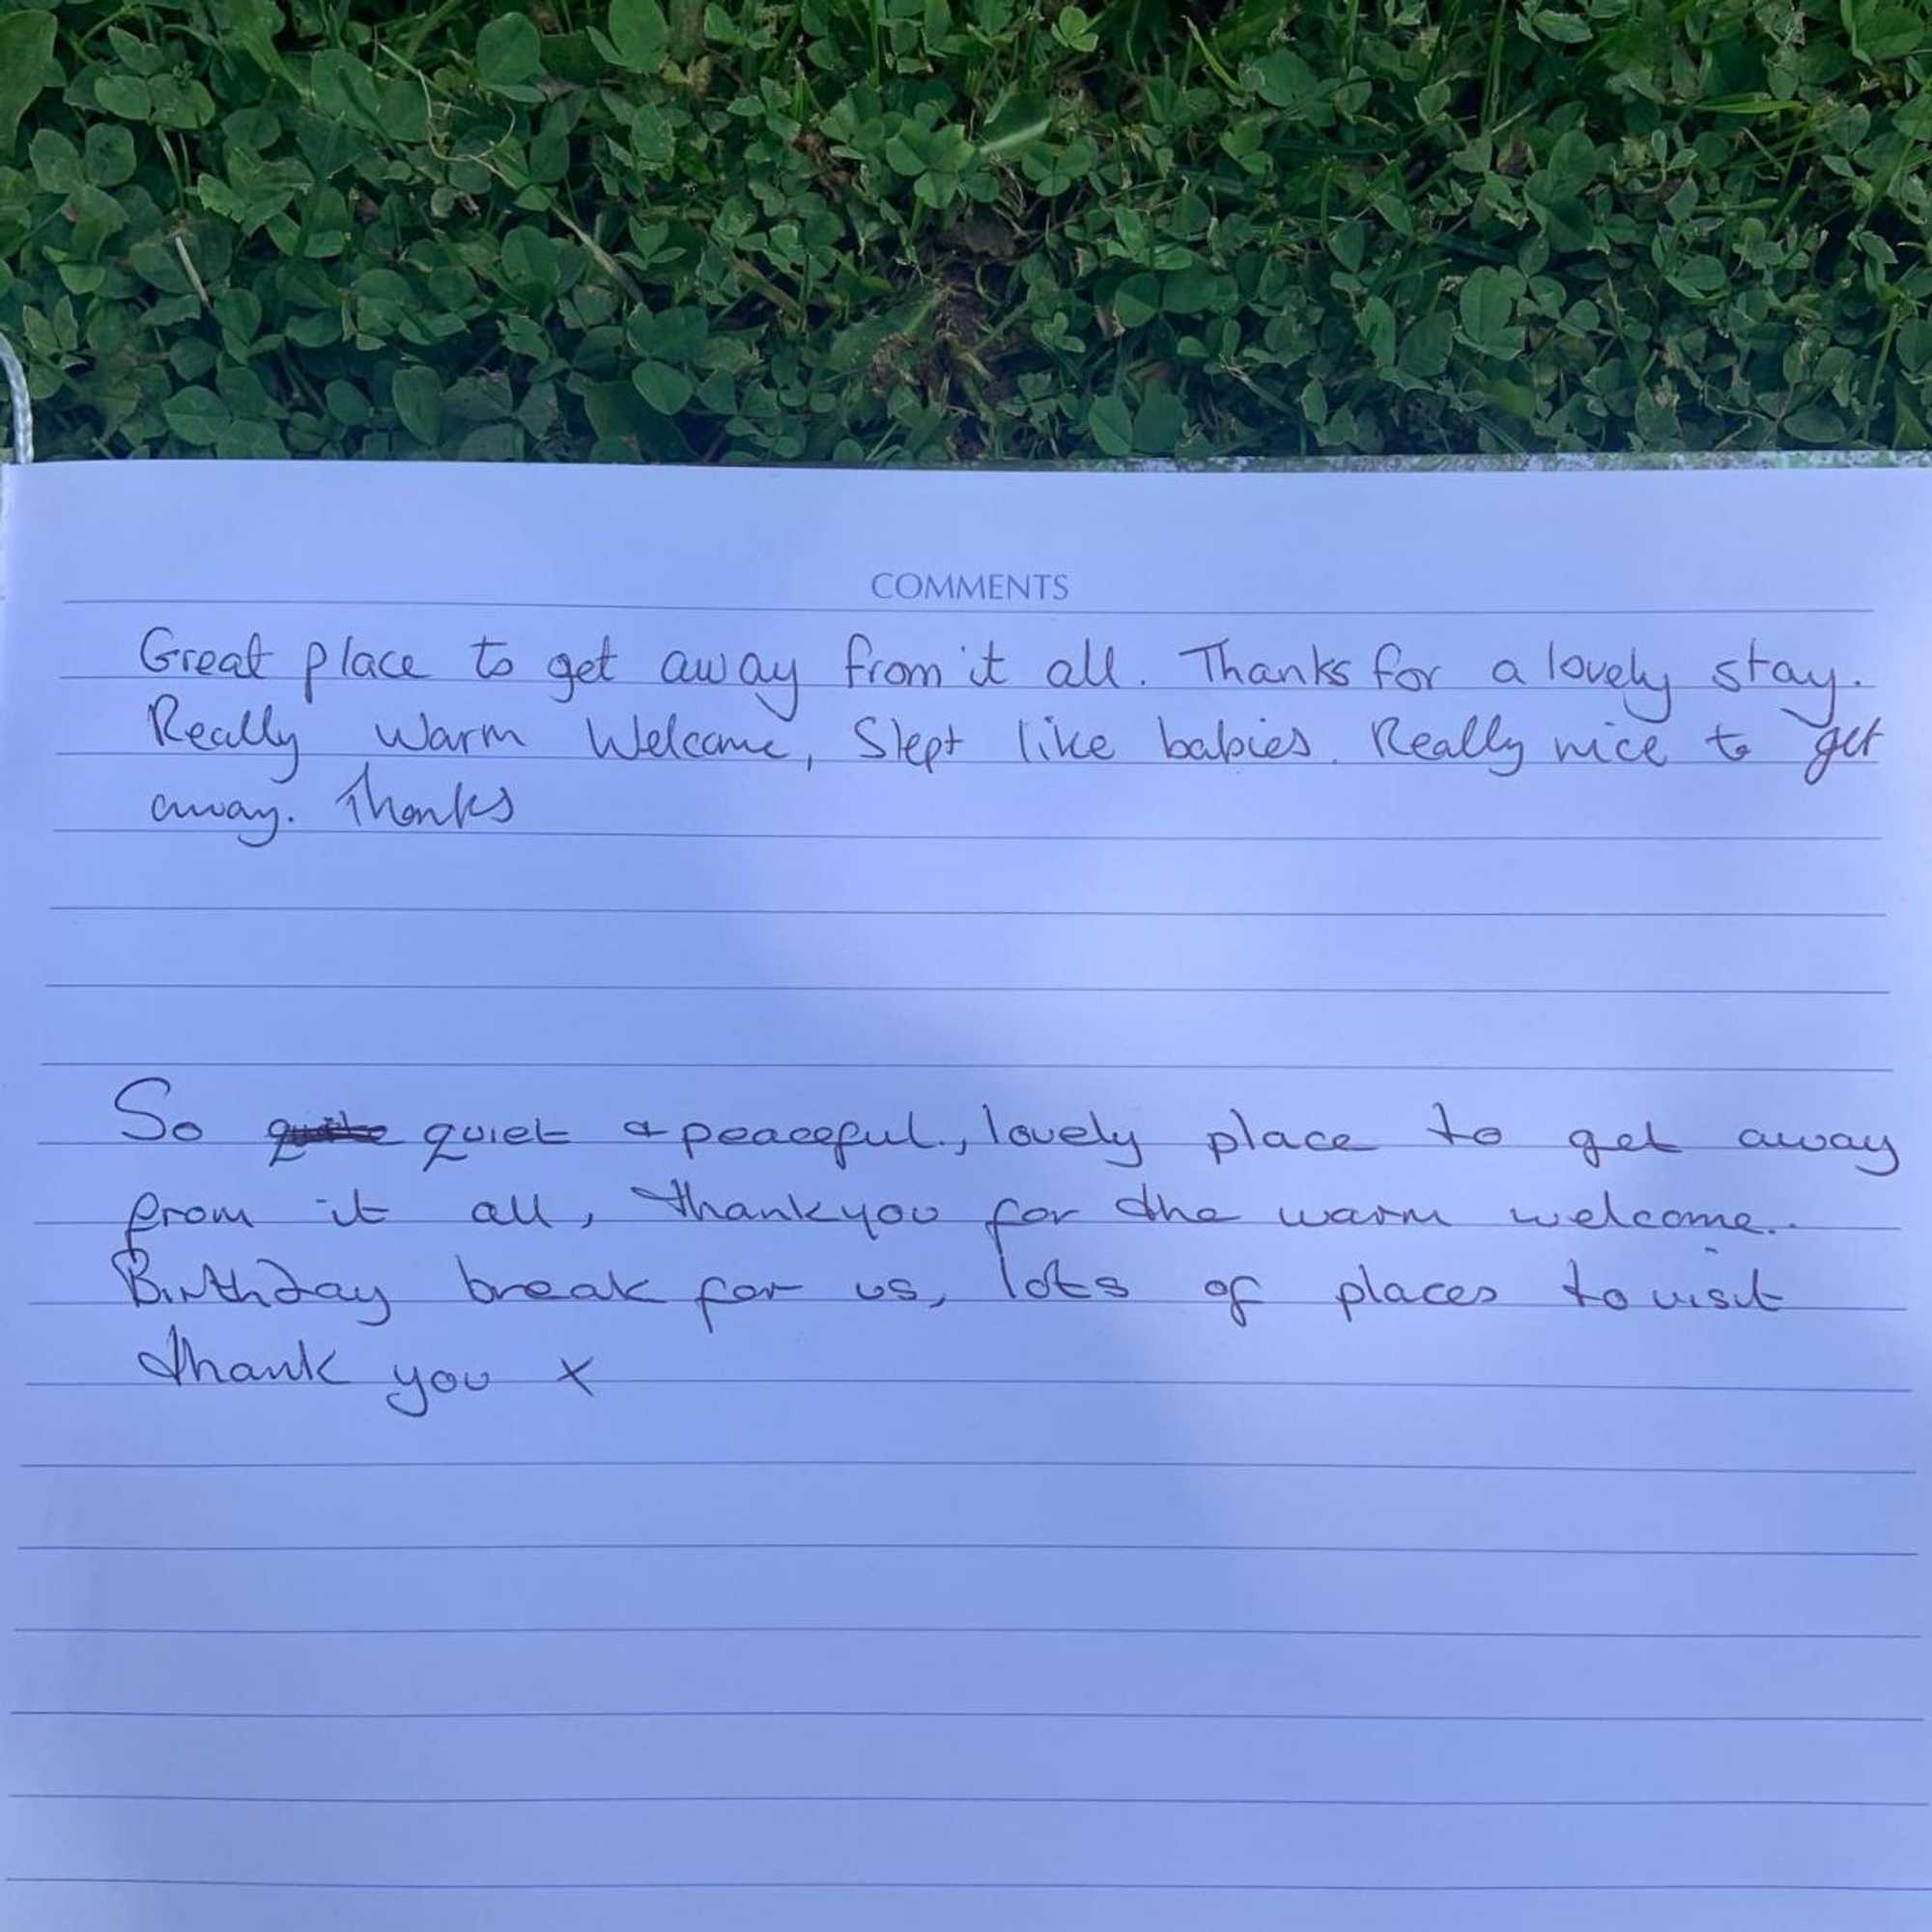 COMMENTS
Great place to get away from it all. Thanks for a lovely stay.
Really warm Welcome, Slept like babies. Really nice to get
away. Thanks
So quiet & peaceful, lovely place to get away
from it all, thankyou for the warm welcome..
Birthday break for us, lots of places to visit
thank you x